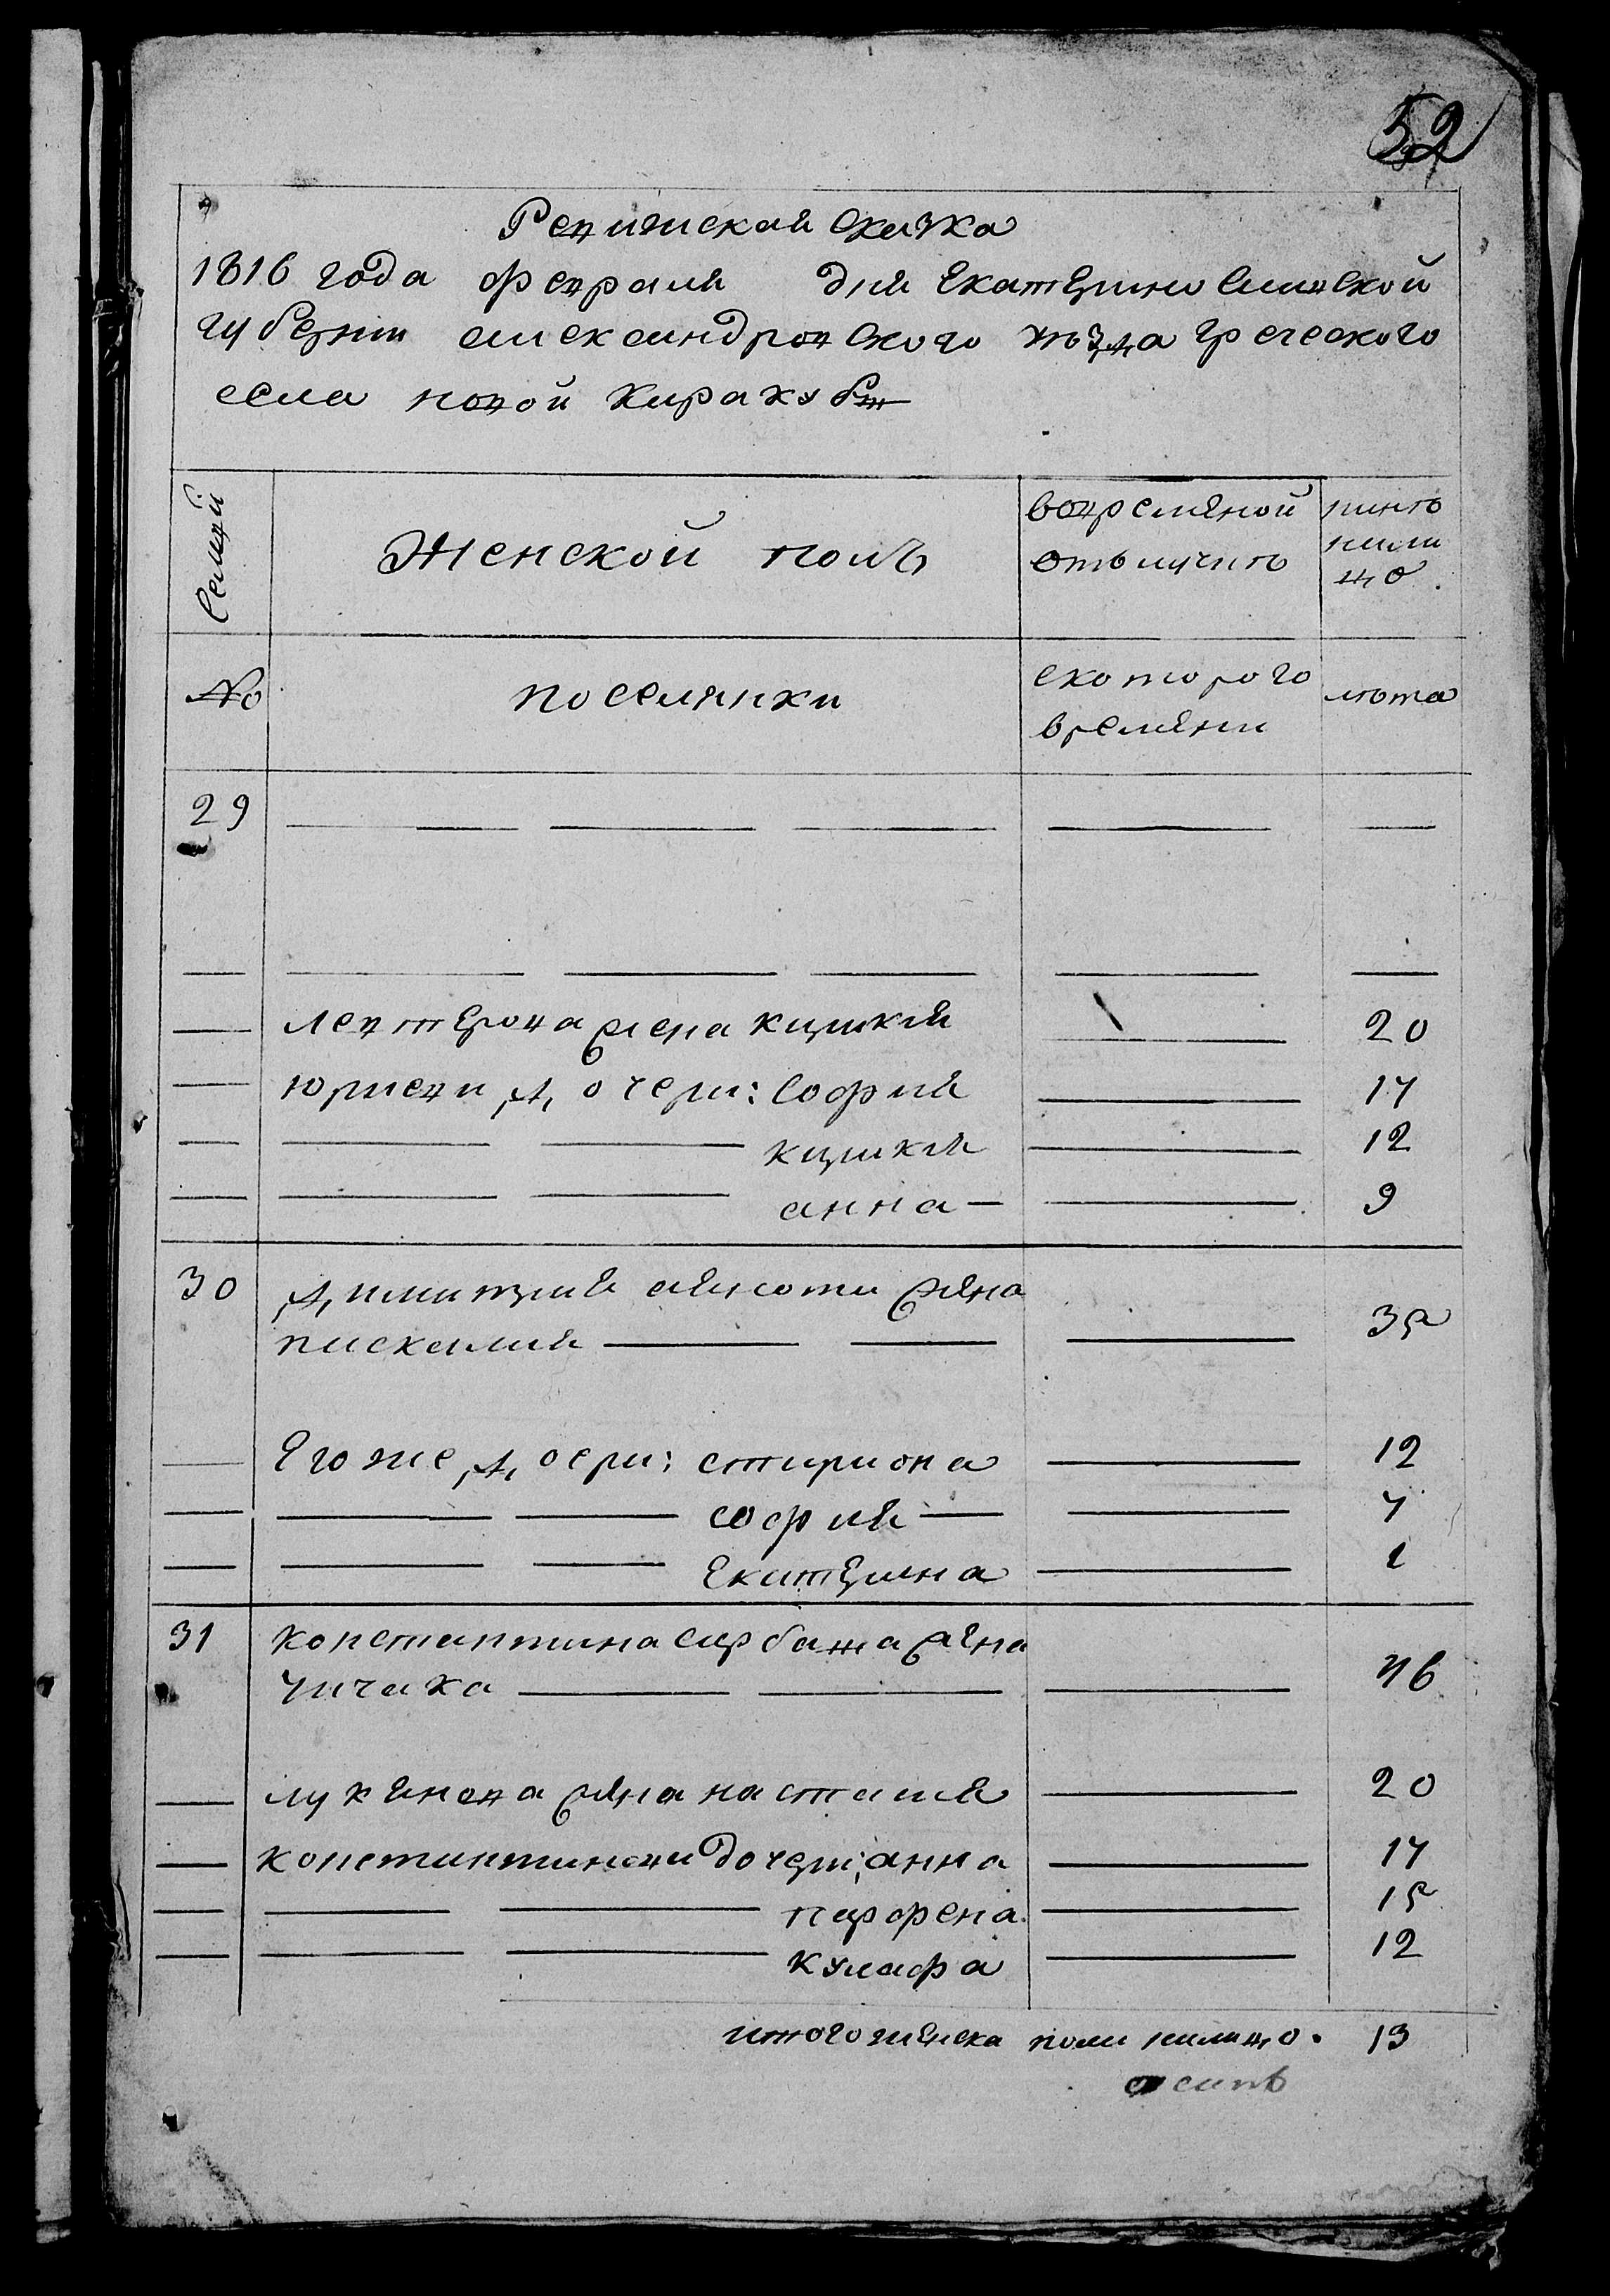 52
Ревижская сказка
1816 года февраля дня Екатеринослаской
губернии александровского уъзда греческого
села новой Каракубы
Семей
Женской полъ
вовремяной
отълучкъ
нинъ
нали
цо
№
поселянки
скоторого
времяни
лъта
29
левтерова жена кирикия 20
юриеви дочери: София 17
кирикия 12
анна 9
30 димитрия жяна
паскалия 35
Его же доери: стириона 12
софия 7
Екатерина 1
31 константина сарбаша жяна
Чичака 46
лукянова жяна настасия 20
константинови дочери: анна 17
парфена 15
кулафа 12
итого женска пола налицо. 13